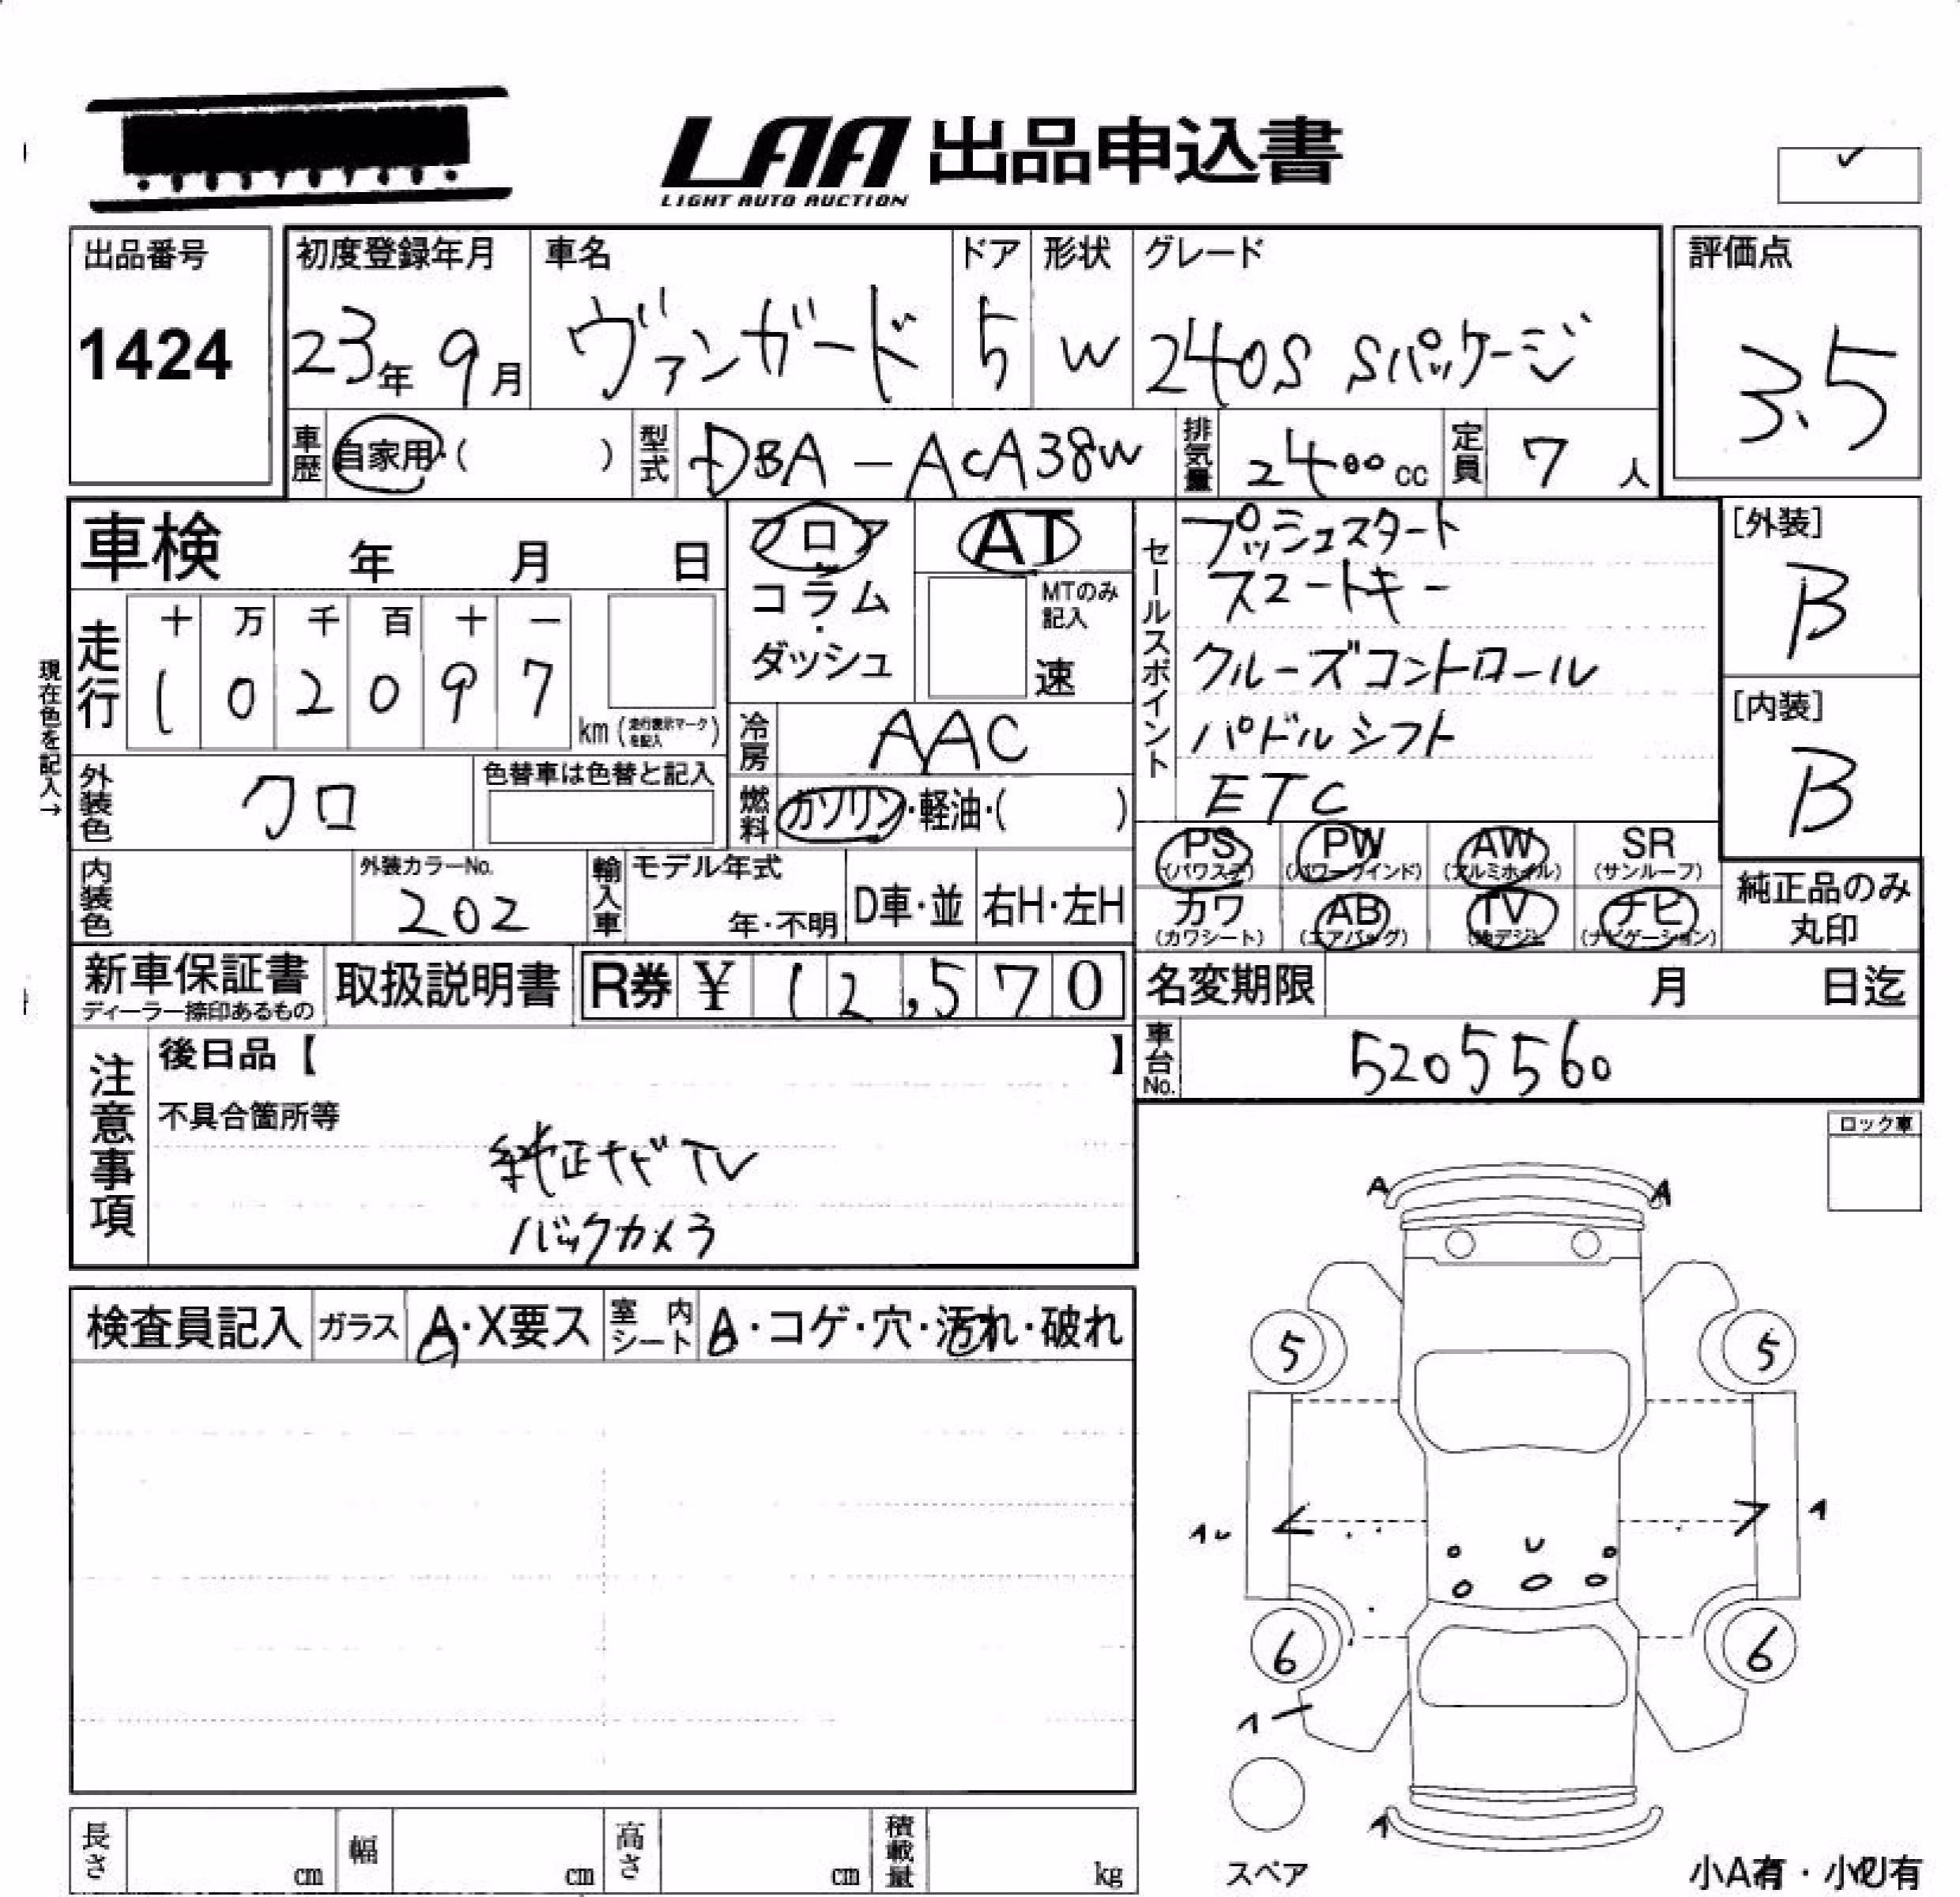 LAA 出品申込書
LIGHT AUTO AUCTION
出品番号
1424
初度登録年月
23年 9月
車名
ヴァンガード
ドア
5
形状
W
グレード
240S Sパッケージ
評価点
3.5
車歴 自家用・( )
型式 DBA-ACA38W
排気量 2400cc
定員 7人
車検 年 月 日
フロア・コラム・ダッシュ
AT
MTのみ記入
速
現在色を記入→
走行
十 万 千 百 十 一
1 0 2 0 9 7
km(走行表示マークを記入)
冷房 AAC
燃料 ガソリン・軽油・( )
外装色 クロ
色替車は色替と記入
内装色
外装カラーNo.
202
輸入車
モデル年式
年・不明
D車・並
右H・左H
セールスポイント
プッシュスタート
スマートキー
クルーズコントロール
パドルシフト
ETC
[外装]
B
[内装]
B
PS (パワステ)
PW (パワーウインド)
AW (アルミホイル)
SR (サンルーフ)
カワ (カワシート)
AB (エアバッグ)
TV (地デジ)
ナビ (ナビゲーション)
純正品のみ丸印
新車保証書
ディーラー捺印あるもの
取扱説明書
R券 ¥ 12,570
名変期限 月 日迄
車台No. 5205560
注意事項
後日品【 】
不具合箇所等
純正ナビ TV
バックカメラ
ロック車
検査員記入
ガラス A・X要ス
室内シート A・コゲ・穴・汚れ・破れ
A A
5 5
1 1
6 6
1
A
スペア
長さ cm
幅 cm
高さ cm
積載量 kg
小A有・小U有